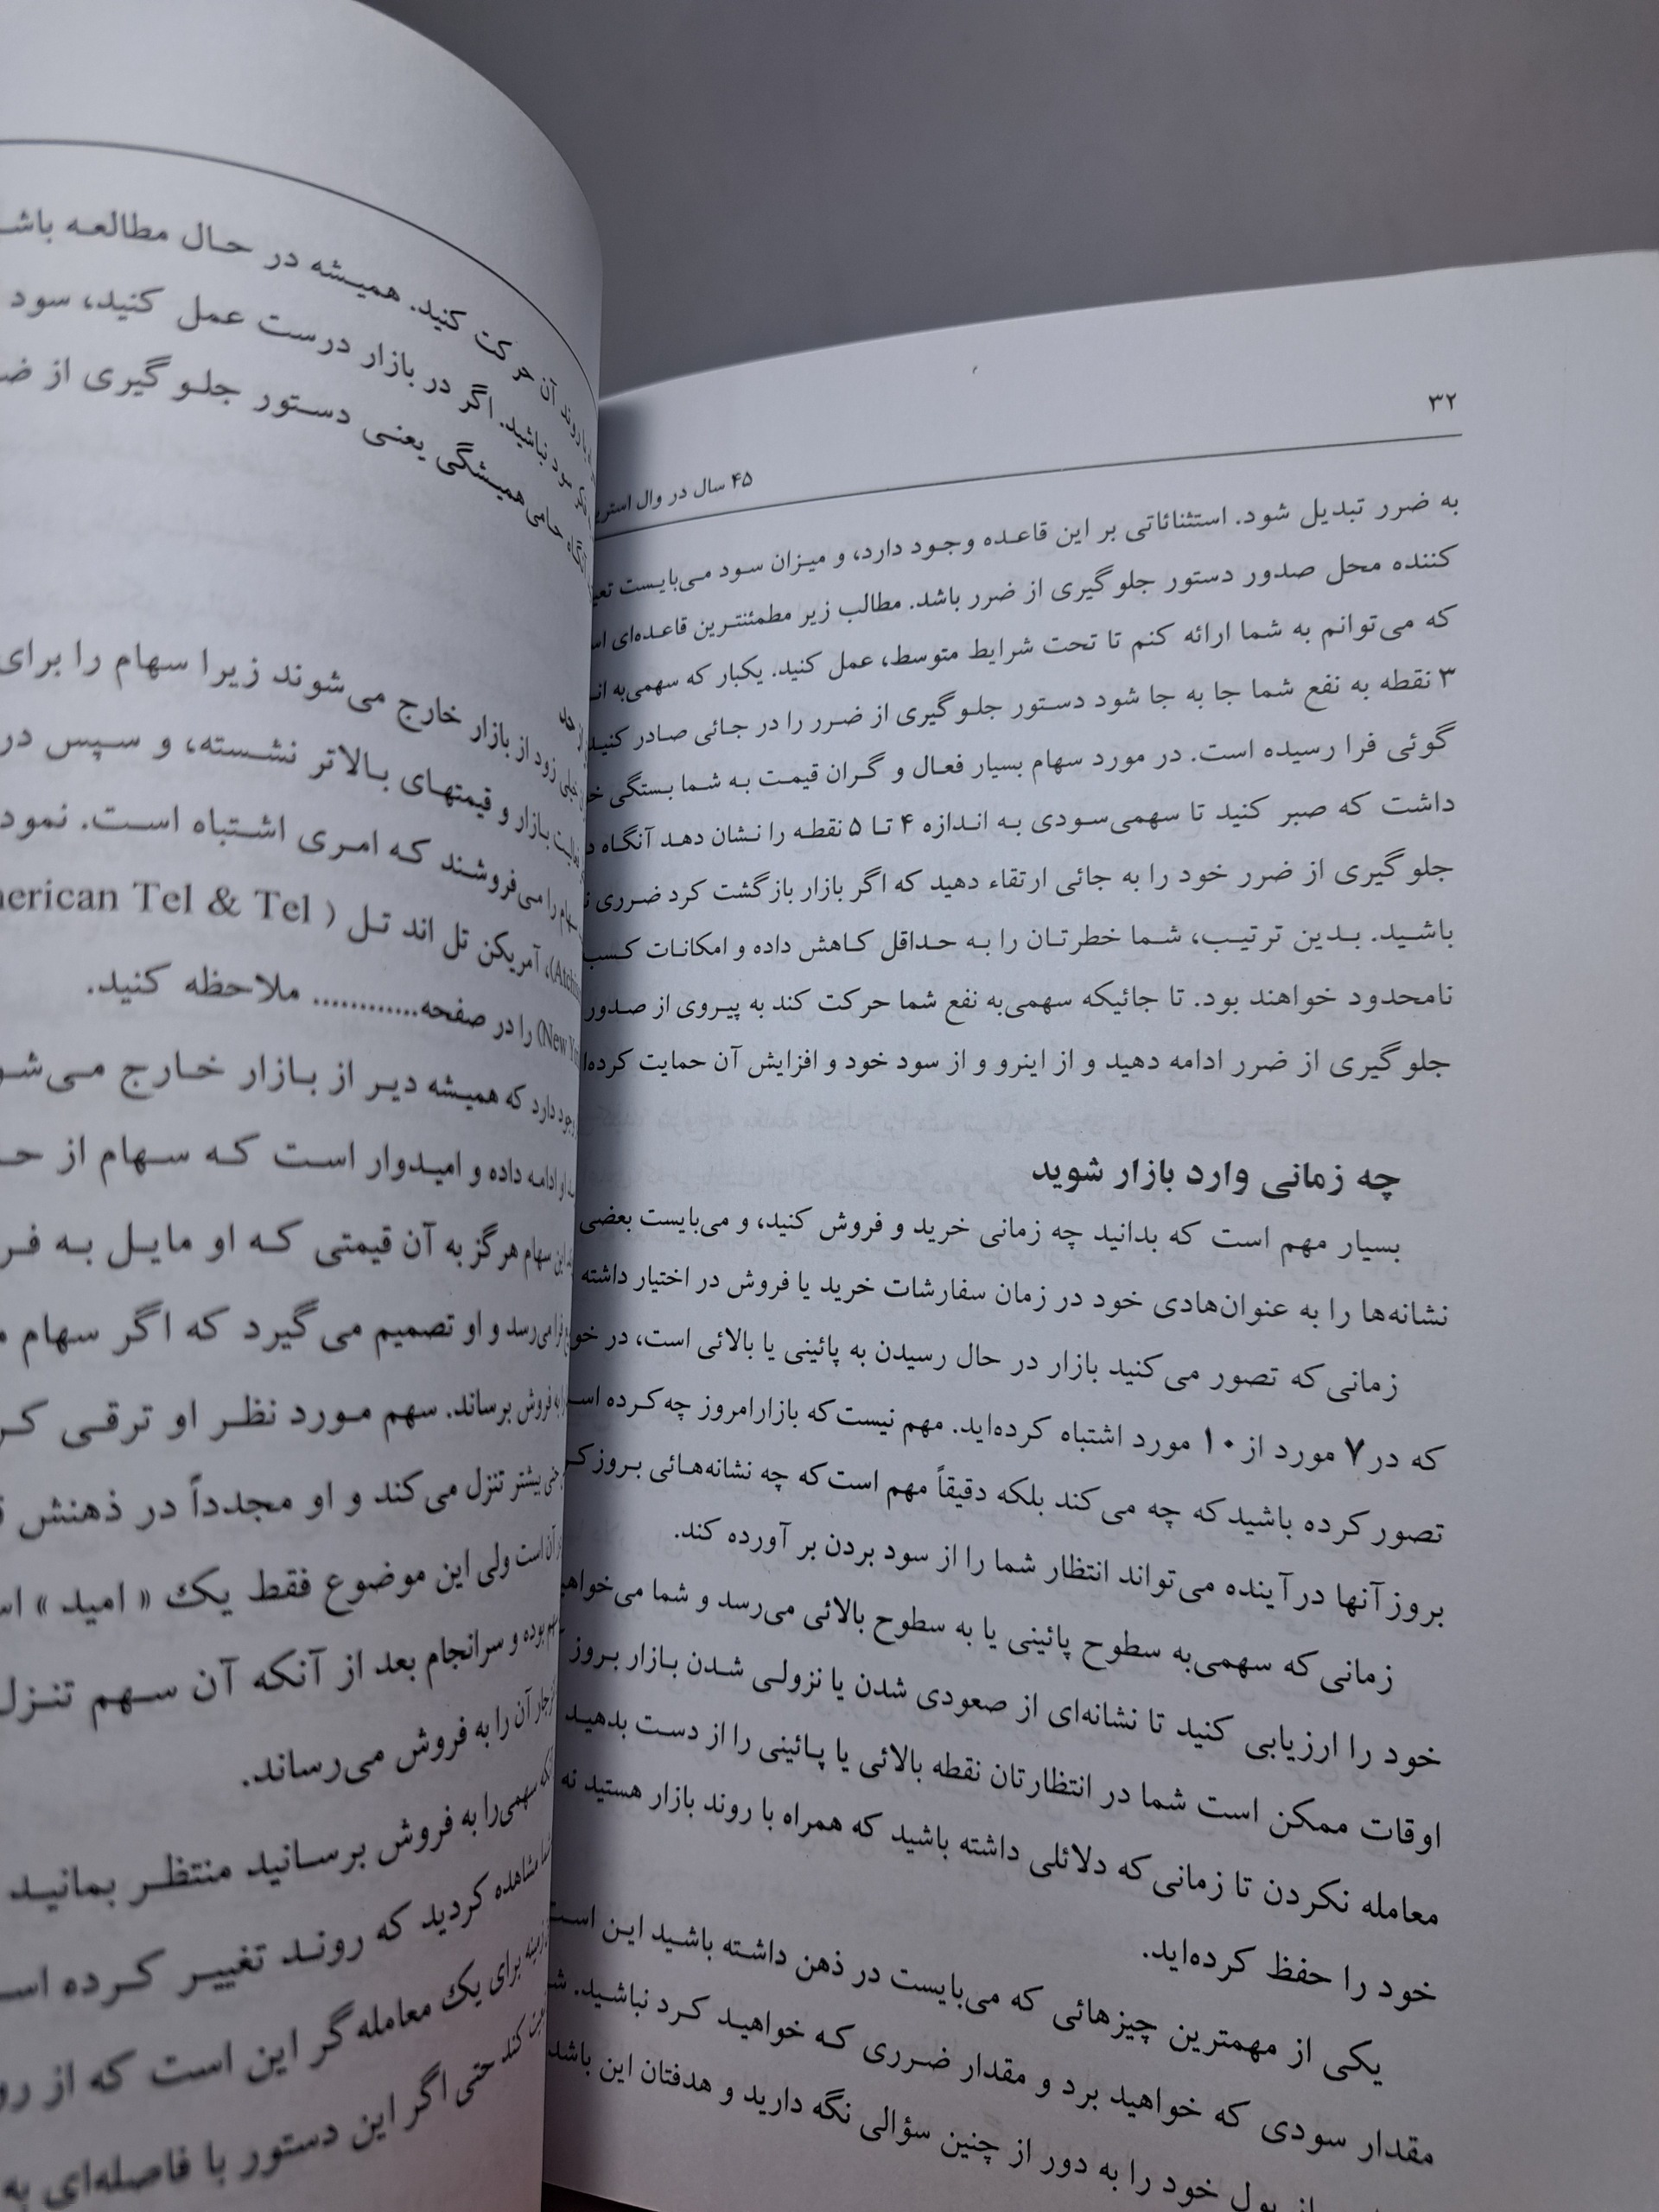 ۳۲
۴۵ سال در وال
به ضرر تبدیل شود. استثنائاتی بر این قاعده وجود دارد، و میزان سود می‌بایست
کننده محل صدور دستور جلوگیری از ضرر باشد. مطالب زیر مطمئنترین قاعده‌ای
که می‌توانم به شما ارائه کنم تا تحت شرایط متوسط، عمل کنید. یکبار که سهمی‌به
۳ نقطه به نفع شما جا به جا شود دستور جلوگیری از ضرر را در جائی صادر
گوئی فرا رسیده است. در مورد سهام بسیار فعال و گران قیمت به شما بستگی
داشت که صبر کنید تا سهمی‌سودی به اندازه ۴ تا ۵ نقطه را نشان دهد آنگاه
جلوگیری از ضرر خود را به جائی ارتقاء دهید که اگر بازار بازگشت کرد ضرری
باشید. بدین ترتیب، شما خطرتان را به حداقل کاهش داده و امکانات کسب
نامحدود خواهند بود. تا جائیکه سهمی‌به نفع شما حرکت کند به پیروی از صدور
جلوگیری از ضرر ادامه دهید و از اینرو و از سود خود و افزایش آن حمایت
چه زمانی وارد بازار شوید
بسیار مهم است که بدانید چه زمانی خرید و فروش کنید، و می‌بایست بعضی
نشانه‌ها را به عنوان‌هادی خود در زمان سفارشات خرید یا فروش در اختیار داشته
زمانی‌که تصور می‌کنید بازار در حال رسیدن به پائینی یا بالائی است، در
که در ۷ مورد از ۱۰ مورد اشتباه کرده‌اید. مهم نیست‌که بازارامروز چه‌کرده
تصورکرده باشیدکه چه می‌کند بلکه دقیقاً مهم است‌که چه نشانه‌هائی
بروزآنها درآینده می‌تواند انتظار شما را از سود بردن بر آورده کند.
زمانی‌که سهمی‌به سطوح پائینی یا به سطوح بالائی می‌رسد و شما
خود را ارزیابی کنید تا نشانه‌ای از صعودی شدن یا نزولی شدن بازار بروز
اوقات ممکن است شما در انتظارتان نقطه بالائی یا پائینی را از دست بدهید
معامله نکردن تا زمانی‌که دلائلی داشته باشید که همراه با روند بازار هستید نه
خود را حفظ کرده‌اید.
یکی از مهمترین چیزهائی که می‌بایست در ذهن داشته باشید این است
مقدار سودی که خواهید برد و مقدار ضرری که خواهید کرد نباشید.
خود را به دور از چنین سؤالی نگه دارید و هدفتان این باشد
آن حرکت کنید. همیشه در حال مطالعه
سود نباشید. اگر در بازار درست عمل کنید، سود
حامی‌همیشگی یعنی دستور جلوگیری از
خیلی زود از بازار خارج می‌شوند زیرا سهام را برای
بازار و قیمتهای بالاتر نشسته، و سپس در
را می‌فروشند که امری اشتباه است.
آمریکن تل اند تل ( Tel & Tel
(New را در صفحه............ ملاحظه کنید.
دارد که همیشه دیر از بازار خارج
ادامه داده و امیدوار است که سهام از
این سهام هرگز به آن قیمتی که او مایل به
فرا می‌رسد و او تصمیم می‌گیرد که اگر سهام
به فروش برساند. سهم مورد نظر او ترقی
حتی بیشتر تنزل می‌کند و او مجدداً در ذهنش
آن است ولی این موضوع فقط یک « امید »
بوده و سرانجام بعد از آنکه آن سهم
آن را به فروش می‌رساند.
سهمی‌را به فروش برسانید منتظر بمانید
مشاهده کردید که روند تغییر کرده
برای یک معامله‌گر این است که از
کند حتی اگر این دستور با فاصله‌ای به